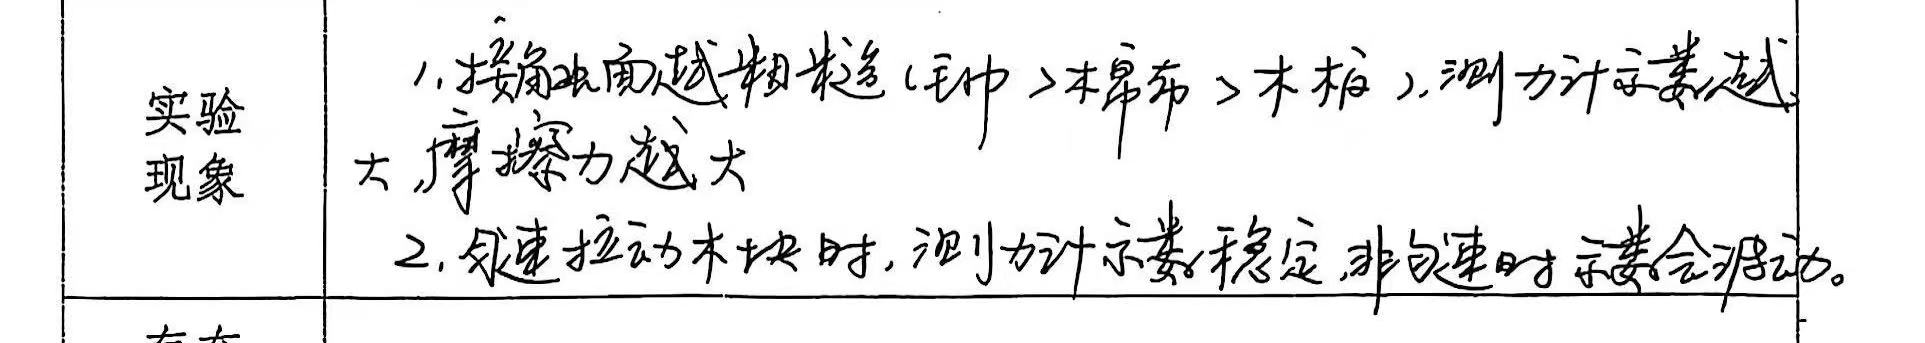 实验
现象
1.接触面越粗糙(毛巾>棉布>木板),测力计示数越
大,摩擦力越大
2.匀速拉动木块时,测力计示数稳定,非匀速时示数会浮动。